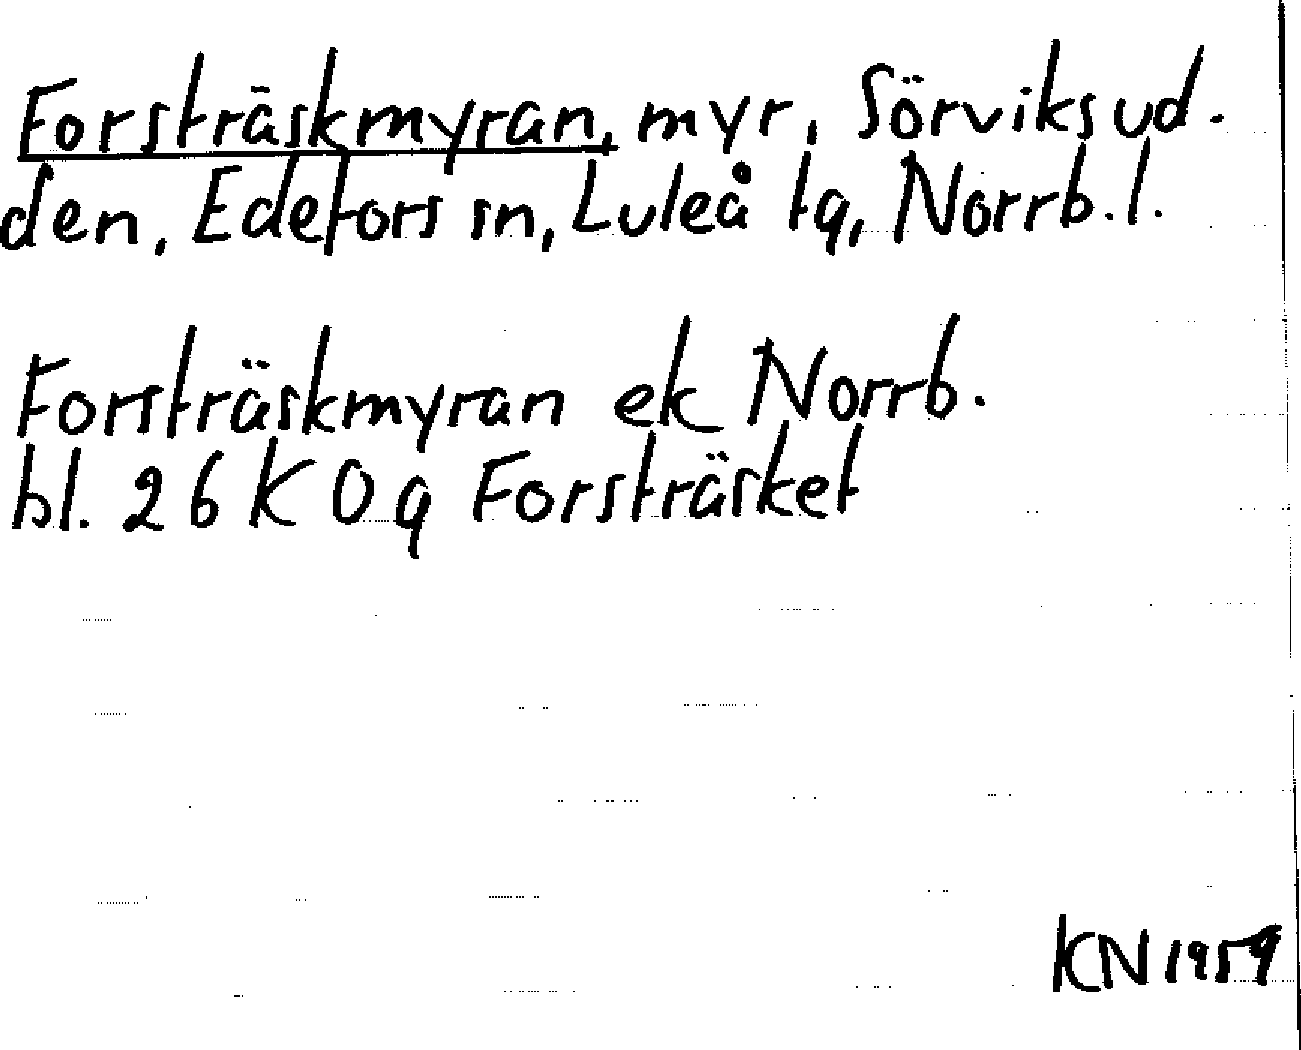 Forsträskmyran, myr, Sörviksud-
den, Edefors sn, Luleå tg, Norrb. l.
Forsträskmyran ek Norrb.
bl. 26 K 0 g Forsträsket
KN 1959